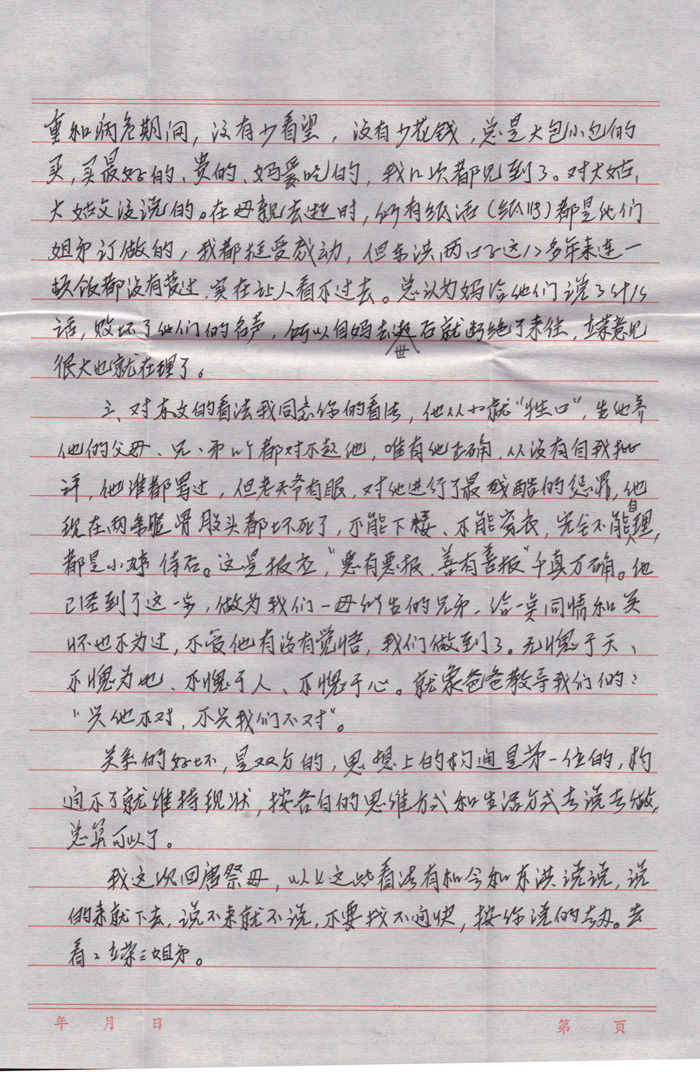 重和病危期间，没有少看望，没有少花钱，总是大包小包的
买，买最好的、贵的、妈爱吃的，我几次都见到了。对大姑、
大姑父没说的。在母亲去逝时，所有纸活（纸马）都是他们
姐弟订做的，我都挺受感动，但东洪两口子这12多年来连一
顿饭都没有管过，实在让人看不过去。总认为妈给他们说了什么
话，败坏了他们的名声，所以自妈去世后就断绝了来往，立荣意见
很大也就在理了。
三、对东文的看法我同意你的看法，他从小就“牲口”，生他养
他的父母、兄、弟几个都对不起他，唯有他正确，从没有自我批
评，他谁都骂过，但老天爷有眼，对他进行了最残酷的惩罪，他
现在两条腿骨股头都坏死了，不能下楼、不能穿衣，完全不能自理，
都是小婷侍后。这是报应，“恶有恶报、善有善报”千真万确。他
已经到了这一步，做为我们一母所生的兄弟，给一负同情和关
怀也不为过，不管他有没有觉悟，我们做到了。无愧于天、
不愧为地、不愧于人、不愧于心。就象爸爸教导我们的：
“兴他不对，不兴我们不对”。
关系的好坏，是双方的，思想上的沟通是第一位的，沟
通不了就维持现状，按各自的思维方式和生活方式去说去做，
总算可以了。
我这次回唐祭母，以上这些看法有机会和东洪说说，说
的来就下去，说不来就不说，不要找不愉快，按你说的去办。去
看看立荣三姐弟。
年 月 日
第 页